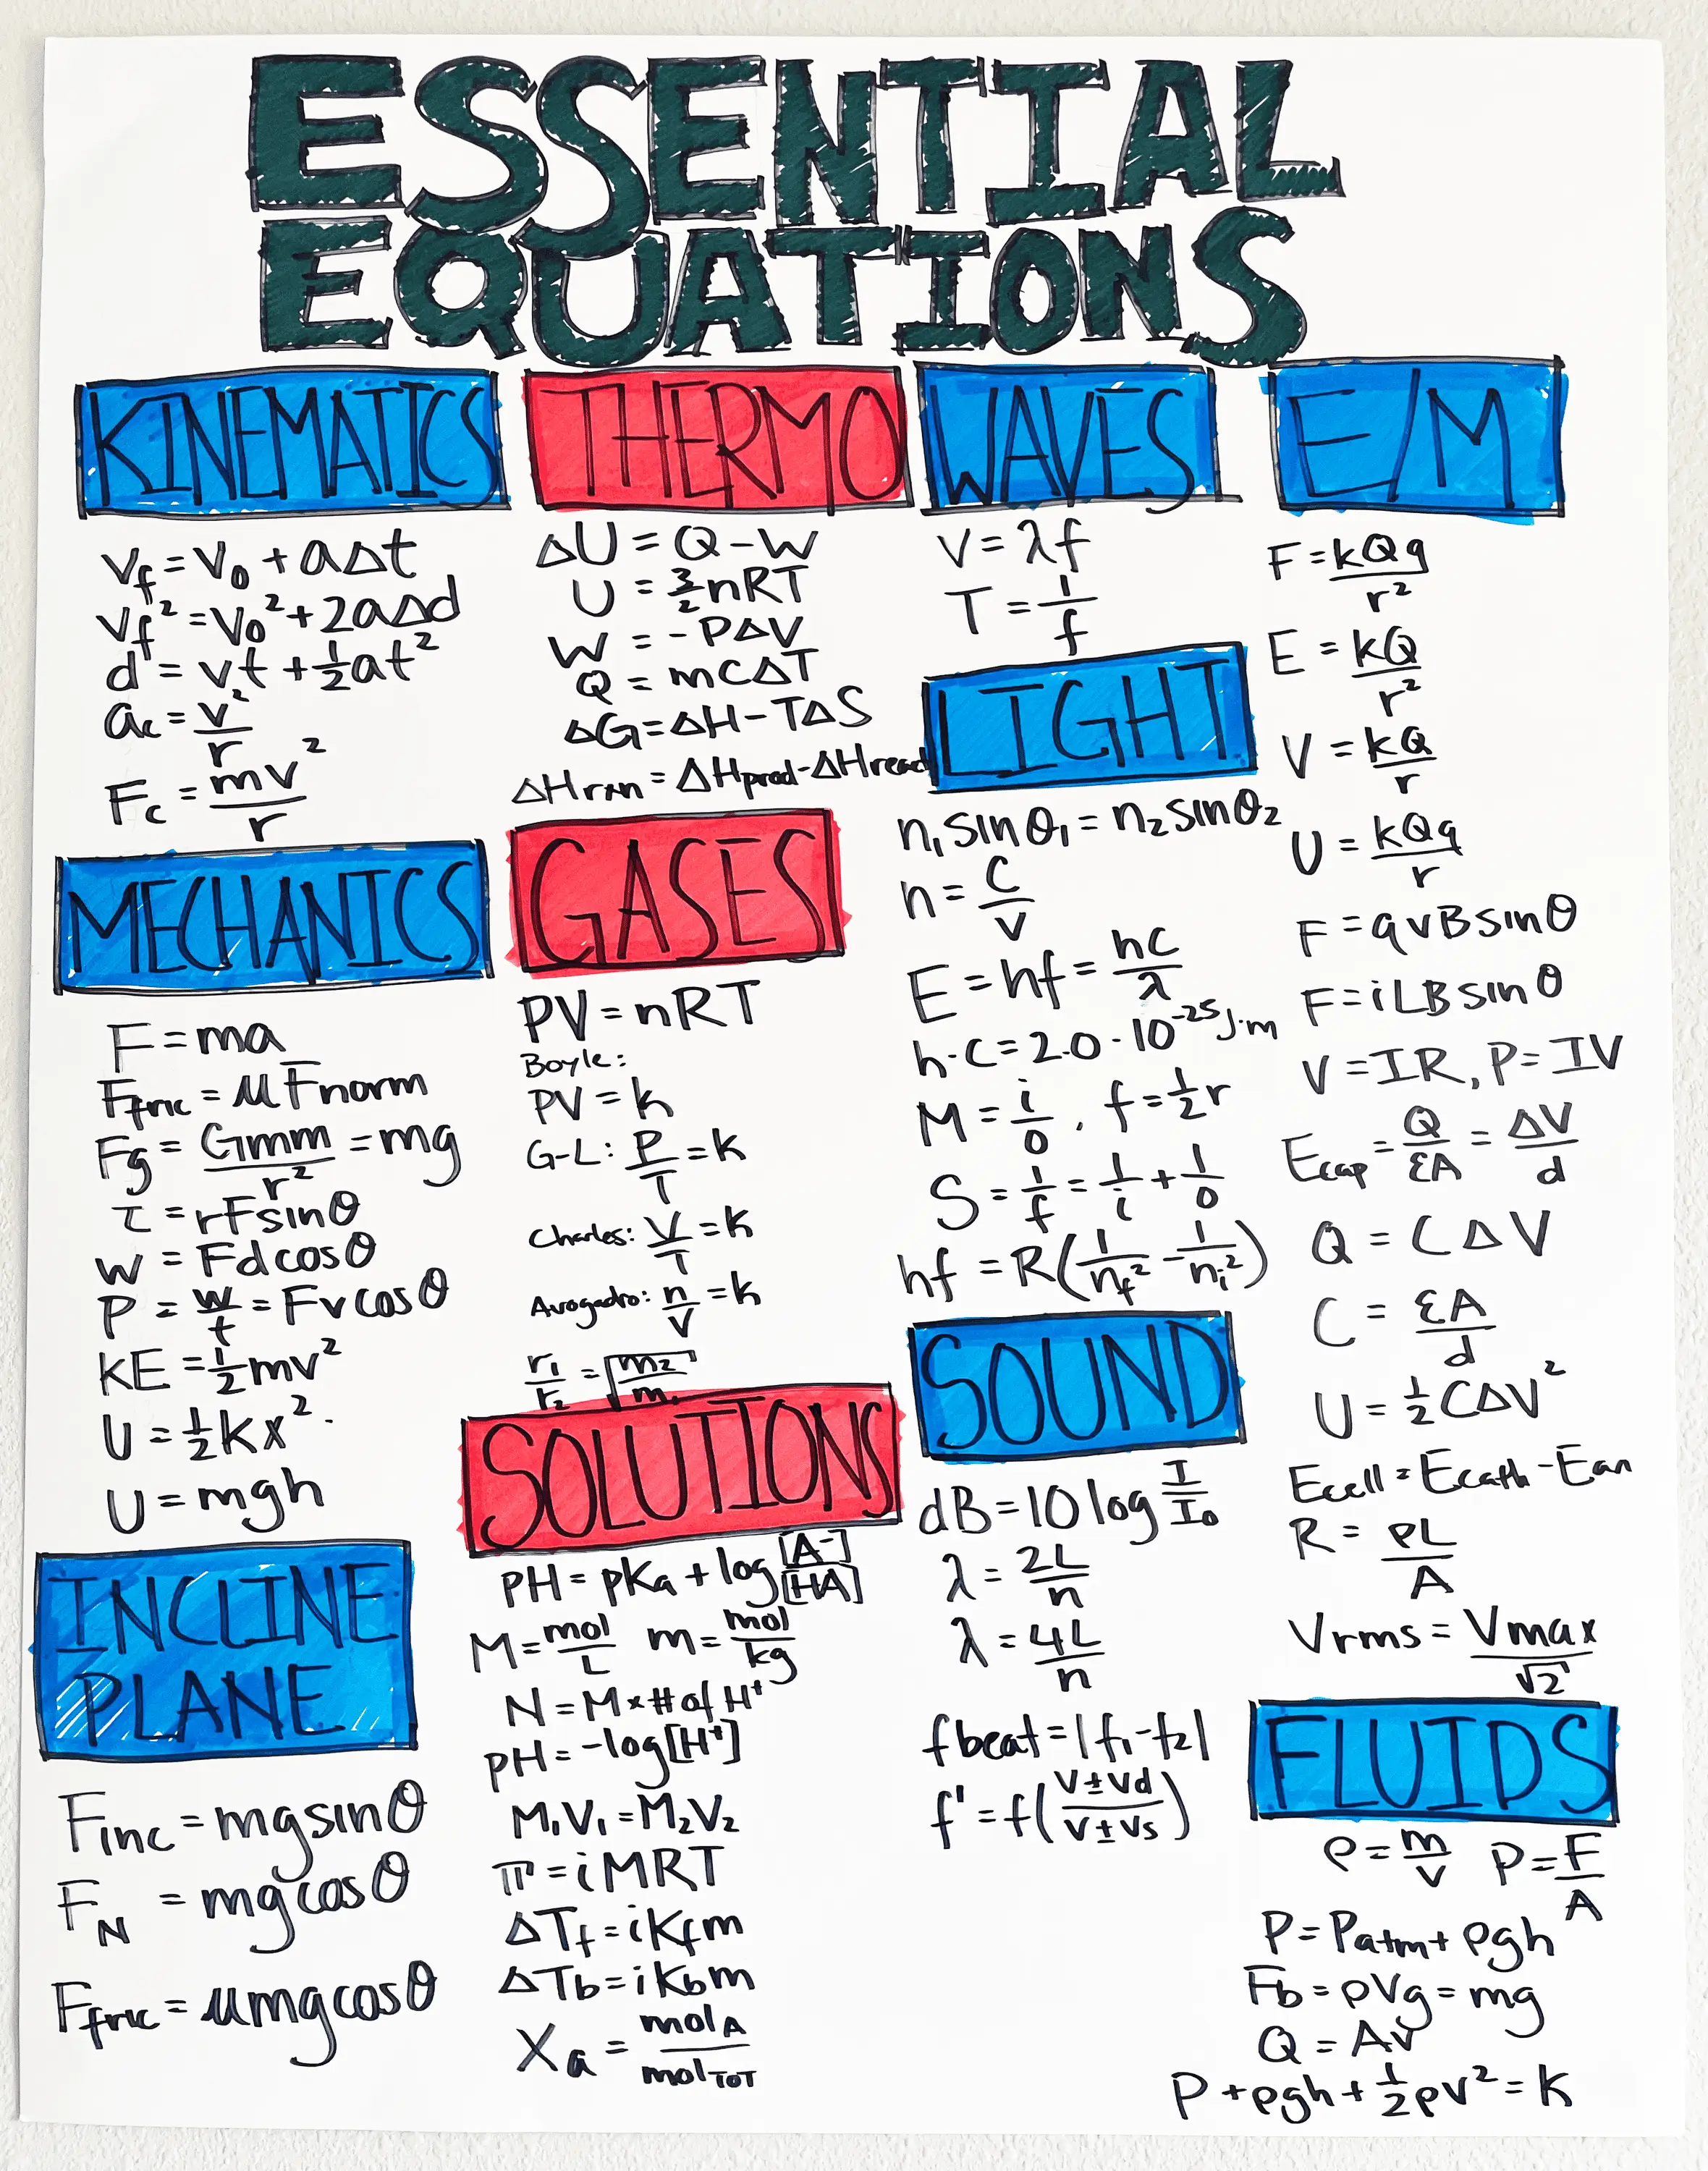 ESSENTIAL
EQUATIONS
KINEMATICS
v_f = v_0 + aΔt
v_f² = v_0² + 2aΔd
d = vt + ½at²
a_c = v²/r
F_c = mv²/r
MECHANICS
F = ma
F_fric = μF_norm
Fg = Gmm/r² = mg
τ = rFsinθ
W = Fdcosθ
P = W/t = Fvcosθ
KE = ½mv²
U = ½kx²
U = mgh
INCLINE
PLANE
F_inc = mgsinθ
F_N = mgcosθ
F_fric = μmgcosθ
THERMO
ΔU = Q - W
U = 3/2 nRT
W = -PΔV
Q = mCΔT
ΔG = ΔH - TΔS
ΔHrxn = ΔHprod - ΔHreact
GASES
PV = nRT
Boyle:
PV = k
G-L: P/T = k
Charles: V/T = k
Avogadro: n/V = k
r₁/r₂ = √(m₂/m₁)
SOLUTIONS
pH = pKa + log [A⁻]/[HA]
M = mol/L m = mol/kg
N = M × # of H⁺
pH = -log[H⁺]
M₁V₁ = M₂V₂
π = iMRT
ΔT_f = iK_fm
ΔT_b = iK_bm
X_a = mol_A/mol_TOT
WAVES
V = λf
T = 1/f
LIGHT
n₁sinθ₁ = n₂sinθ₂
n = C/V
E = hf = hC/λ
h·C = 2.0·10⁻²⁵ J·m
M = i/o, f = ½r
S = 1/f = 1/i + 1/o
hf = R(1/n_f² - 1/n_i²)
SOUND
dB = 10 log I/I₀
λ = 2L/n
λ = 4L/n
fbeat = |f₁-f₂|
f' = f(V±Vd/V±Vs)
E/M
F = kQq/r²
E = kQ/r²
V = kQ/r
U = kQq/r
F = qvBsinθ
F = iLBsinθ
V = IR, P = IV
Ecap = Q/εA = ΔV/d
Q = CΔV
C = εA/d
U = ½CΔV²
Ecell = Ecath - Ean
R = ρL/A
Vrms = Vmax/√2
FLUIDS
ρ = m/V P = F/A
P = Patm + ρgh
Fb = ρVg = mg
Q = Av
P + ρgh + ½ρv² = k